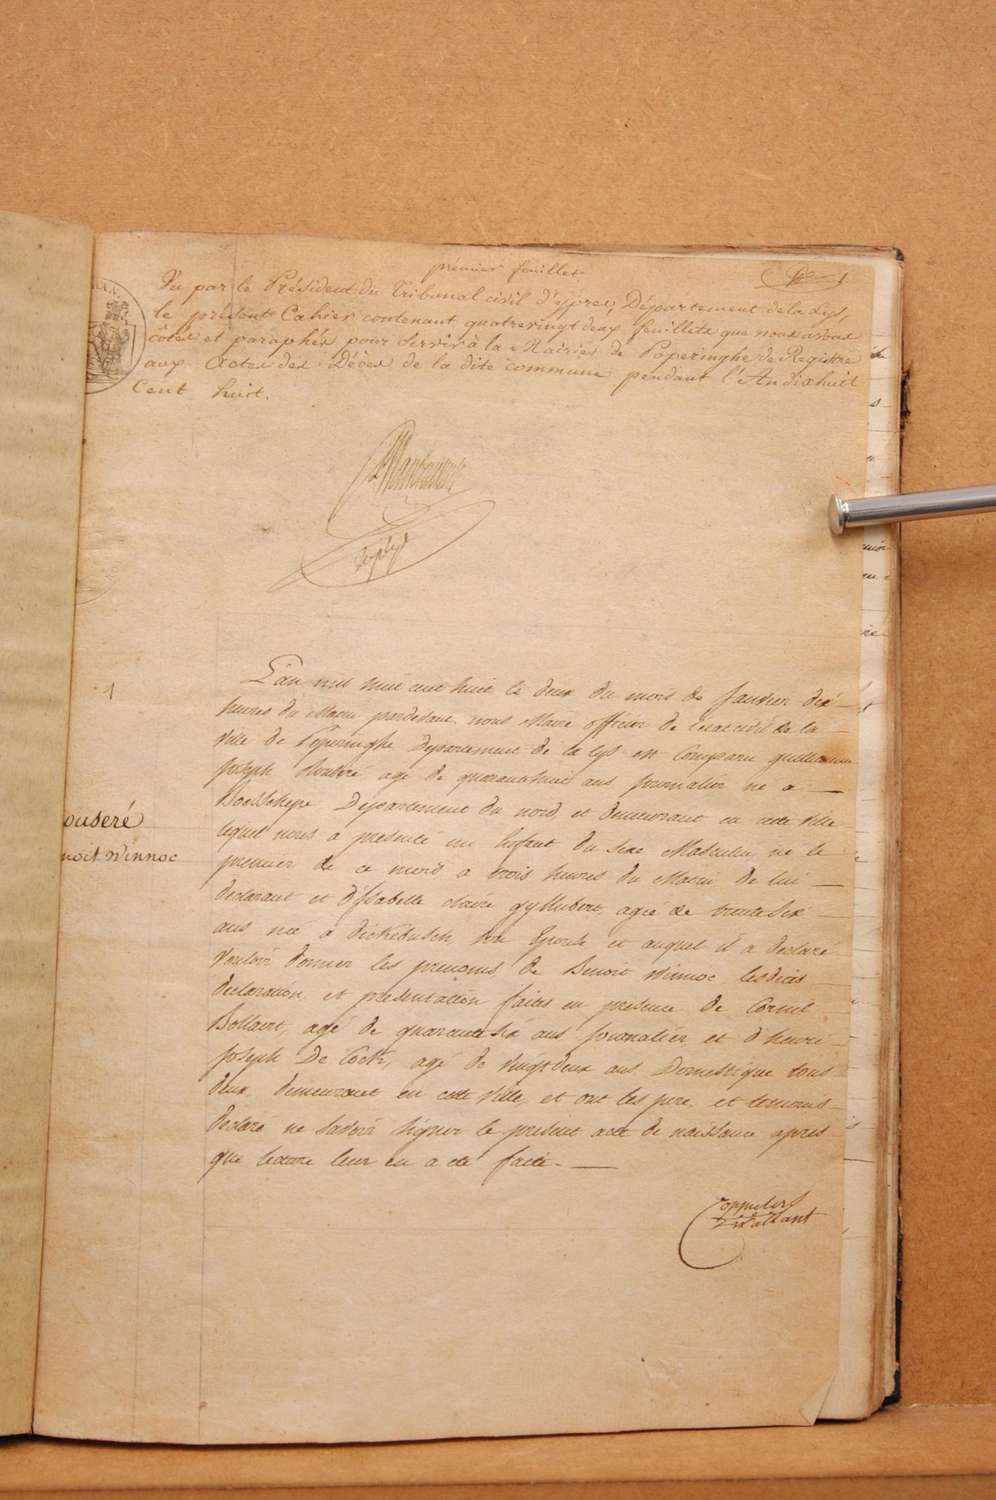 premier feuillet
1
Vu par le Président du Tribunal civil d'ypres, Département de la Lys,
le présent Cahier contenant quatrevingt deux feuillets que nous avons
côtés et paraphés pour servir à la Mairie de Poperinghe de Registre
aux Actes des Décès de la dite commune pendant l'An dixhuit
Cent huit.
1
L'an mil huit cent huit le deux du mois de Janvier dix
heures du Matin pardevant nous Maire officier de l'état civil de la
Ville de Poperinghe Departement de la Lys est Comparu guillaume
Joseph Ouseré agé de quarante huit ans Journalier né a
Boeschepe Département du nord, et demeurant en cette Ville
ouseré
lequel nous a présenté un Enfant du sexe Masculin né le
noit Winnoc
premier de ce mois a trois heures du Matin de lui
declarant et d'Isabelle Claire Gyllubert, agée de trente Six
ans née a dickebusch son Epouse et auquel il a declaré
Vouloir donner les prenoms de Benoit Winnoc lesdites
declaration, et présentation faites en presence de Cornil
Bollaert, agé de quarante six ans Journalier et d'henri
Joseph De Cock, agé de vingt deux ans Domestique tous
deux demeurant en cette Ville, et ont les pere et temoins
declaré ne savoir signer le present acte de naissance apres
que lecture leur en a été faite.